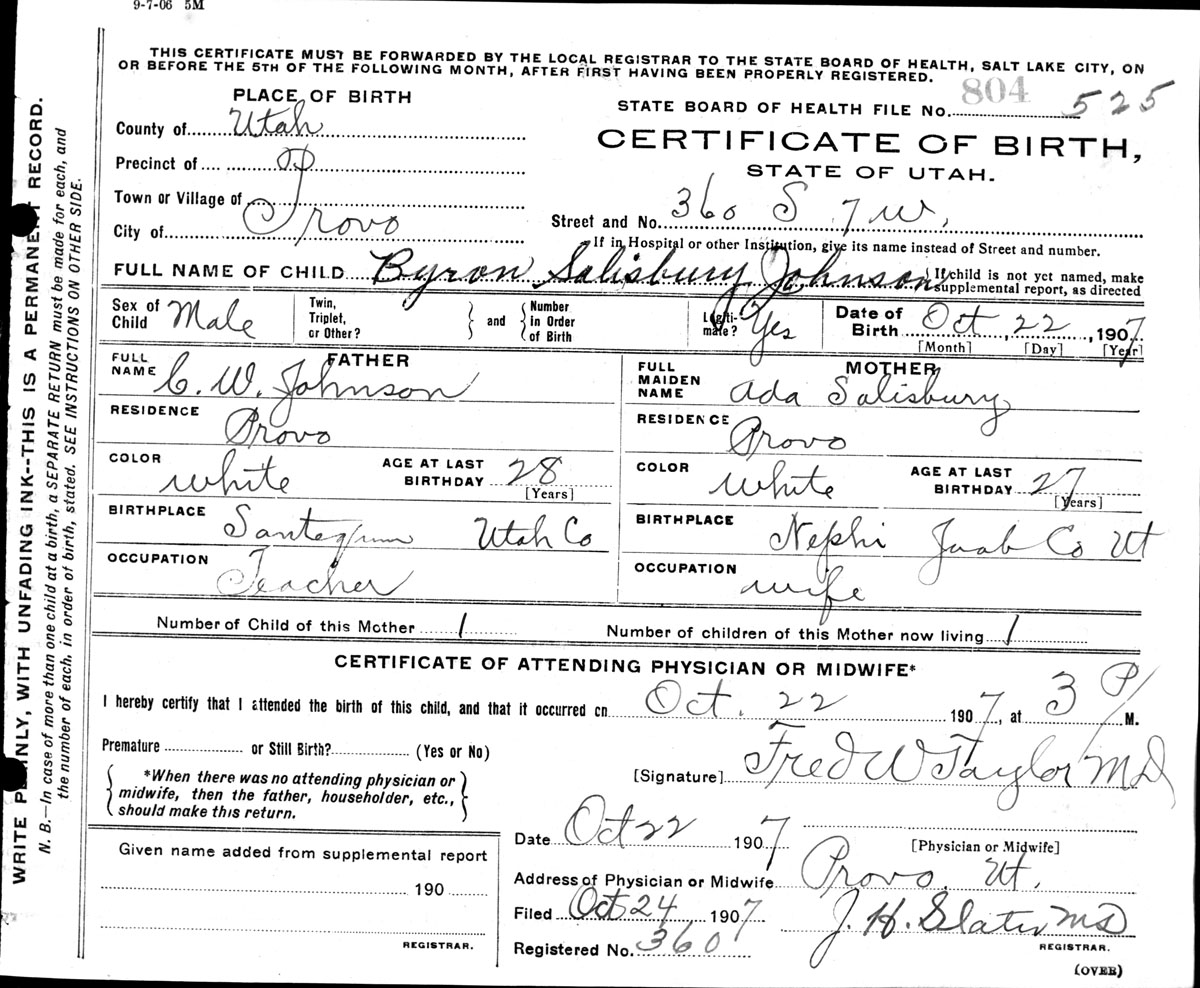 9-7-06 5M
THIS CERTIFICATE MUST BE FORWARDED BY THE LOCAL REGISTRAR TO THE STATE BOARD OF HEALTH, SALT LAKE CITY, ON
OR BEFORE THE 5TH OF THE FOLLOWING MONTH, AFTER FIRST HAVING BEEN PROPERLY REGISTERED.
804
PLACE OF BIRTH
STATE BOARD OF HEALTH FILE No. 525
County of Utah
CERTIFICATE OF BIRTH,
STATE OF UTAH.
Precinct of
Town or Village of
City of Provo
Street and No. 360 S 7 W,
If in Hospital or other Institution, give its name instead of Street and number.
FULL NAME OF CHILD Byron Salisbury Johnson { If child is not yet named, make
supplemental report, as directed
Sex of Child Male
Twin, Triplet, or Other? } and { Number in Order of Birth
Legiti-mate? Yes
Date of Birth Oct 22, 1907
[Month] [Day] [Year]
FATHER
FULL NAME C. W. Johnson
MOTHER
FULL MAIDEN NAME Ada Salisbury
RESIDENCE Provo
RESIDENCE Provo
COLOR white AGE AT LAST BIRTHDAY 28 [Years]
COLOR white AGE AT LAST BIRTHDAY 27 [Years]
BIRTHPLACE Santaquin Utah Co
BIRTHPLACE Nephi Juab Co Ut
OCCUPATION Teacher
OCCUPATION wife
Number of Child of this Mother 1 Number of children of this Mother now living 1
CERTIFICATE OF ATTENDING PHYSICIAN OR MIDWIFE*
I hereby certify that I attended the birth of this child, and that it occurred on Oct. 22 1907, at 3 P M.
Premature or Still Birth? (Yes or No)
[Signature] Fred W Taylor MD
{ *When there was no attending physician or
midwife, then the father, householder, etc.,
should make this return. }
Date Oct 22 1907
[Physician or Midwife]
Given name added from supplemental report
190
REGISTRAR.
Address of Physician or Midwife Provo, Ut.
Filed Oct 24, 1907 J. H. Slater MD
Registered No. 360 REGISTRAR.
(OVER)
WRITE PLAINLY, WITH UNFADING INK--THIS IS A PERMANENT RECORD.
N. B.—In case of more than one child at a birth, a SEPARATE RETURN must be made for each, and
the number of each, in order of birth, stated. SEE INSTRUCTIONS ON OTHER SIDE.